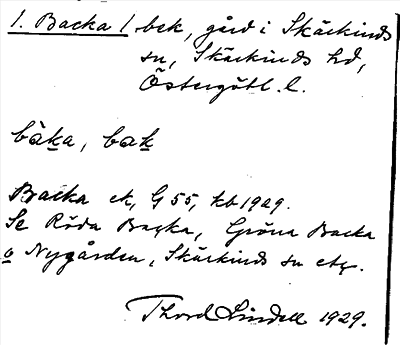 1. Backa / bek, gård i Skärkinds
sn, Skärkinds hd,
Östergötl. l.
bàka, bak
Backa ek, G 55, kb 1929.
Se Röda Backa, Gröna Backa
o Nygården, Skärkinds sn etc.
Thord Lindell 1929.